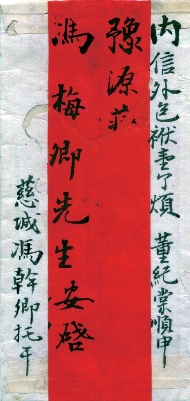 內信外包袱壹个煩 董紀棠順申
豫源莊
馮梅卿先生安啓
慈城馮幹卿托干